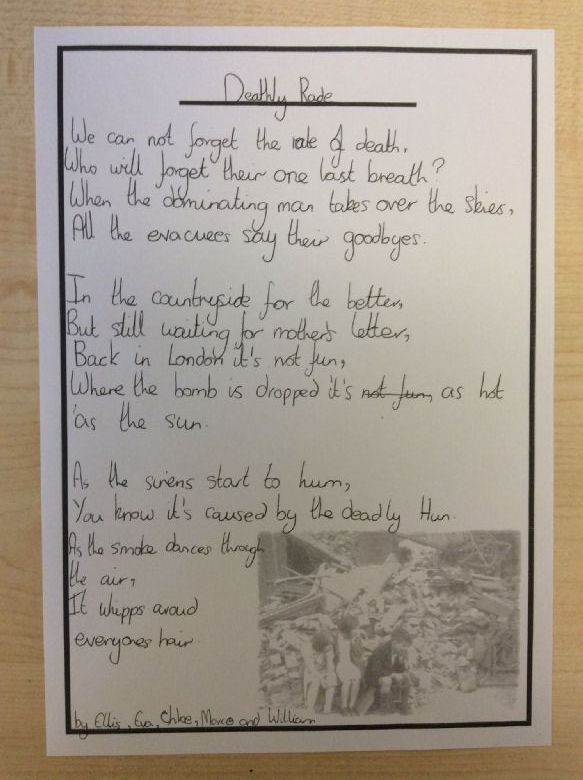 Deathly Rade
We can not forget the rate of death,
Who will forget their one last breath?
When the dominating man takes over the skies,
All the evacuees say their goodbyes.
In the countryside for the better,
But still waiting for mothers letter,
Back in London it's not fun,
Where the bomb is dropped it's not fun, as hot
as the sun.
As the sirens start to hum,
You know it's caused by the deadly Hun.
As the smoke dances through
the air,
It whipps aroud
everyones hair.
by Ellis, Eva, Chloe, Marco and William